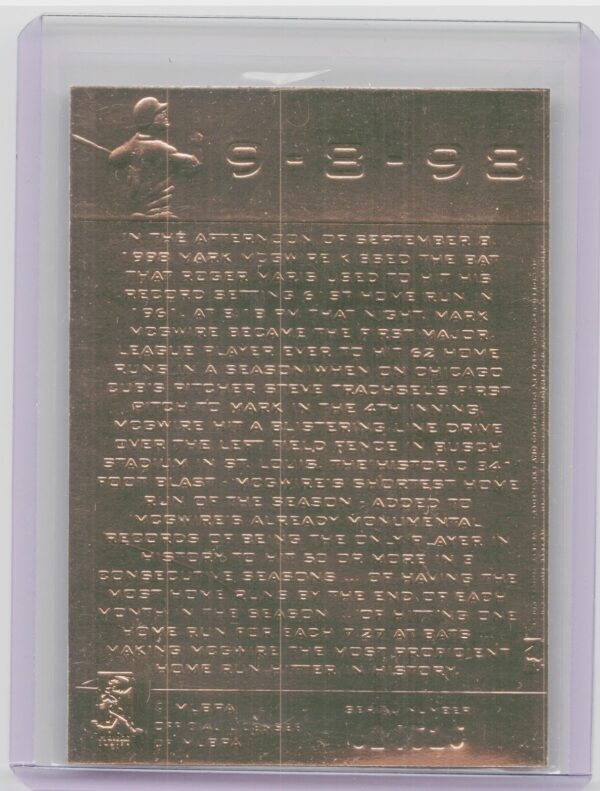 9-8-98
IN THE AFTERNOON OF SEPTEMBER 8,
1998 MARK MCGWIRE KISSED THE BAT
THAT ROGER MARIS USED TO HIT HIS
RECORD SETTING 61ST HOME RUN IN
1961. AT 8:18 PM THAT NIGHT, MARK
MCGWIRE BECAME THE FIRST MAJOR
LEAGUE PLAYER EVER TO HIT 62 HOME
RUNS IN A SEASON WHEN ON CHICAGO
CUB'S PITCHER STEVE TRACHSEL'S FIRST
PITCH TO MARK IN THE 4TH INNING,
MCGWIRE HIT A BLISTERING LINE DRIVE
OVER THE LEFT FIELD FENCE IN BUSCH
STADIUM IN ST. LOUIS. THE HISTORIC 341-
FOOT BLAST - MCGWIRE'S SHORTEST HOME
RUN OF THE SEASON - ADDED TO
MCGWIRE'S ALREADY MONUMENTAL
RECORDS OF BEING THE ONLY PLAYER IN
HISTORY TO HIT 50 OR MORE IN 3
CONSECUTIVE SEASONS ... OF HAVING THE
MOST HOME RUNS BY THE END OF EACH
MONTH IN THE SEASON ... OF HITTING ONE
HOME RUN FOR EACH 7.27 AT BATS ...
MAKING MCGWIRE THE MOST PROFICIENT
HOME RUN HITTER IN HISTORY.
© MLBPA
OFFICIAL LICENSEE
MLBPA
SERIAL NUMBER